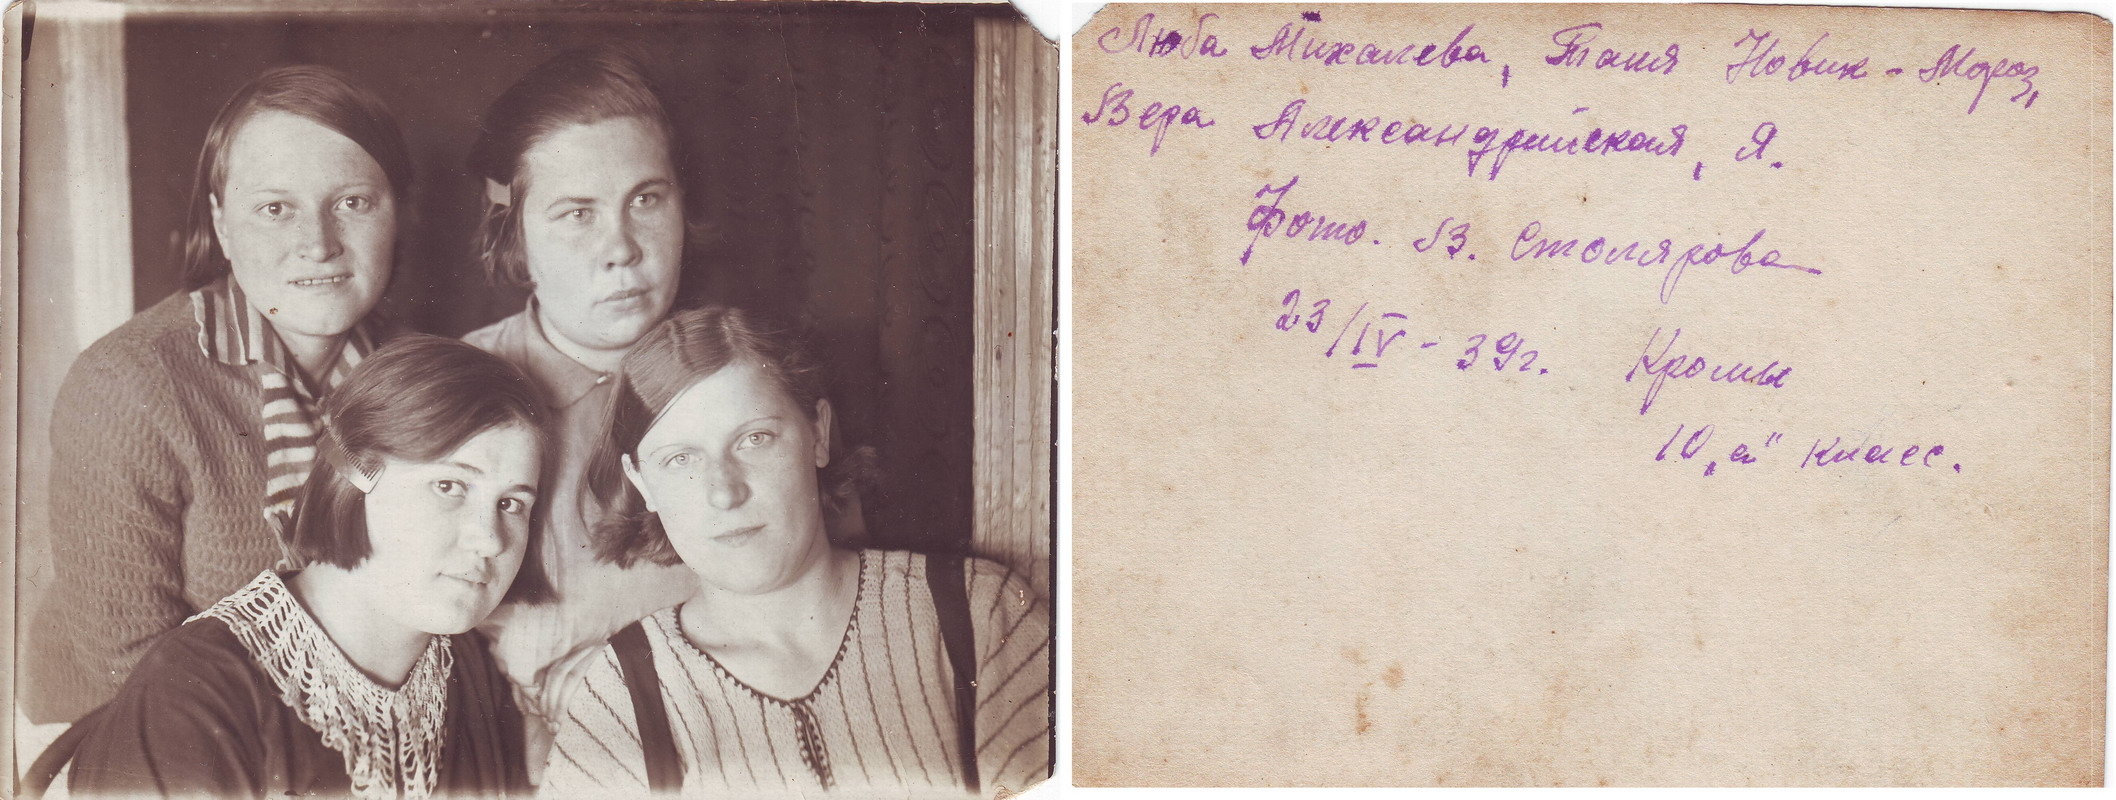 Люба Михалева, Таня Новик - Мороз,
Вера Александрийская, Я.
Фото. В. Столярова
23/IV - 39г. Кромы
10 „а" класс.